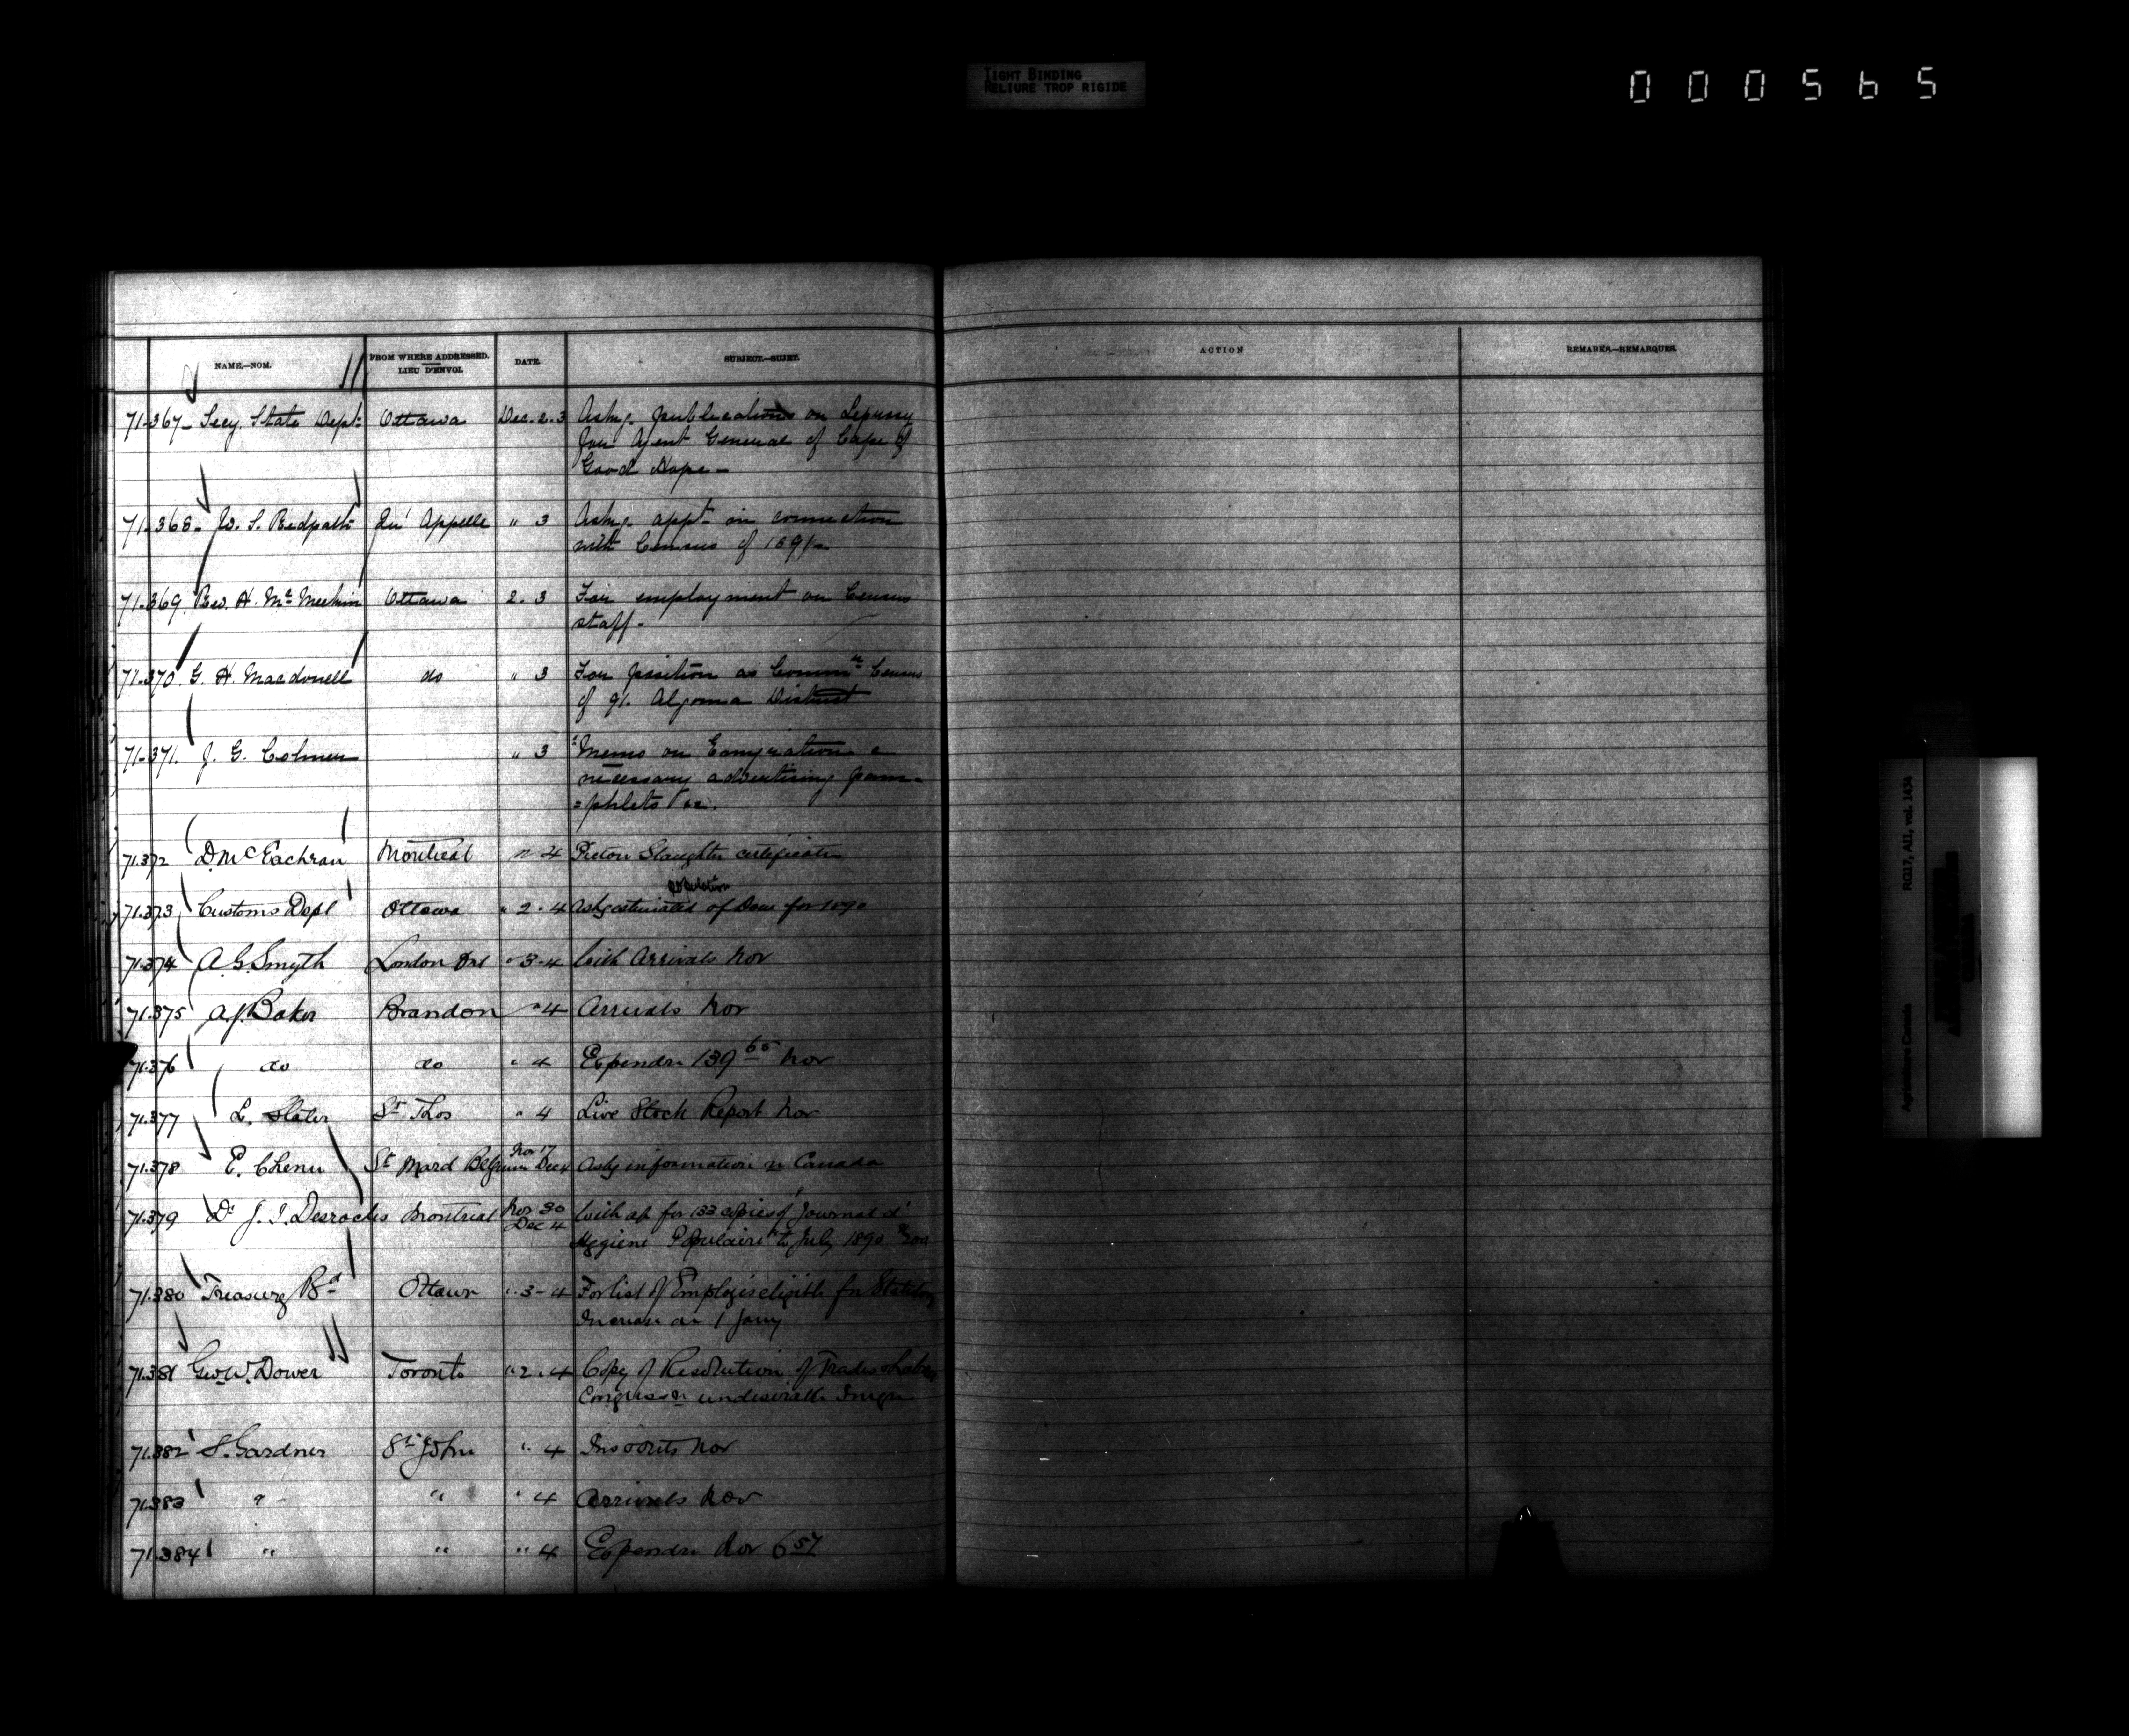 TIGHT BINDING
RELIURE TROP RIGIDE
000565
NAME.—NOM.
FROM WHERE ADDRESSED.
LIEU D'ENVOI.
DATE.
SUBJECT.—SUJET.
ACTION
REMARKS.—REMARQUES.
71-367- Secy. State Dept. Ottawa Dec. 2. 3 Askg. publications on Leprosy
for Agent General of Cape of
Good Hope-
71-368- S. Redpath Qu' Appelle " 3 Askg. appt. in connection
with Census of 1891-
71-369 Rev. H. Mc Meekin Ottawa 2. 3 For employment on Census
staff-
71-370 G. H. Macdonell do " 3 For position as Commr Census
of 91. Algoma District
71-371. J. G. Colmer " 3 Memo on Emigration &
necessary advertising pam=
=phlets &c.
71.372 D. McEachran Montreal " 4 Pictou Slaughter certificates
71.373 Customs Dept Ottawa " 2. 4 Askg estimated population of Dom for 1890
71.374 A. G. Smyth London Ont " 3-4 With Arrivals Nov
71.375 A. J. Baker Brandon " 4 Arrivals Nov
71.376 do do " 4 Expendre 139 65 Nov
71.377 L. Slater St. Thos " 4 Live Stock Report Nov
71.378 E. Chenu St Mard Belgium Nov 17 Dec 4 Askg information on Canada
71.379 Dr J. I. Desroches Montreal Nov 30 Dec 4 With a/c for 133 copies of Journal d'
Hygiene Populaire to July 1890
71.380 Treasury Bd Ottawa " 3-4 For list of Employees eligible for Statutory
Increase on 1 Jany
71.381 Geo W. Dower Toronto " 2. 4 Copy of Resolution of Trades & Labour
Congress on undesirable Immgn
71.382 S. Gardner St John " 4 Nov
71.383 " " " 4 Arrivals Nov
71.384 " " " 4 Expendre Nov 6 57
RG17, AII, vol. 1434
Agriculture Canada